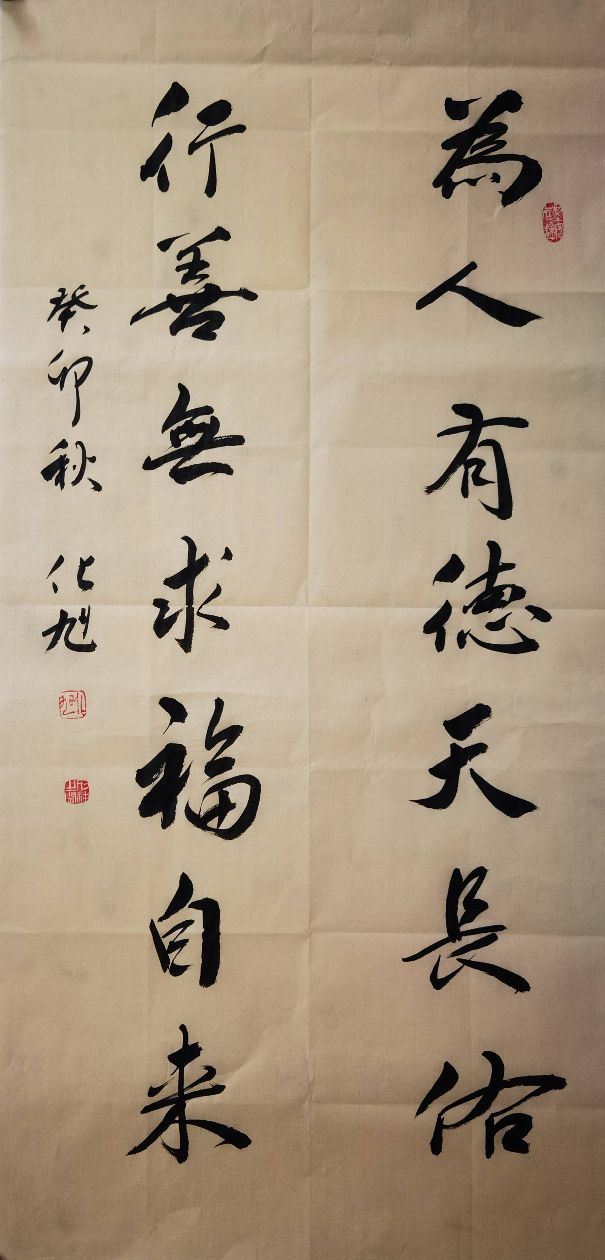 為人有德天長佑
行善無求福自来
癸卯秋 化旭